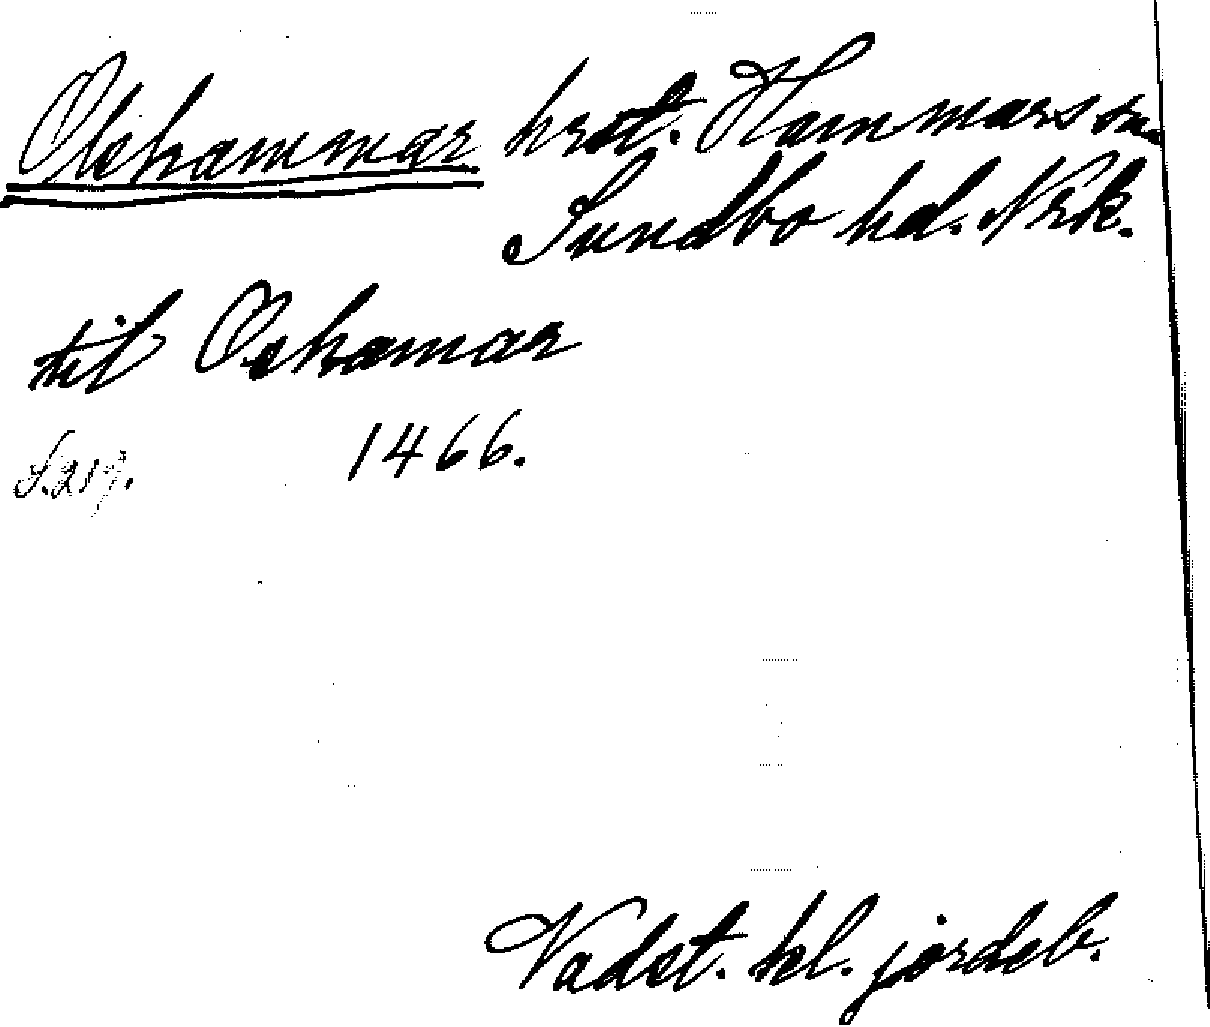 Olshammar Hammars sn.
Sundbo hd. Nrk.
til Oshamar
S.217. 1466.
Vadst. kl. jordeb.